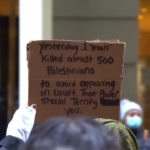 Yesterday 1 man
Killed almost 500
Palestinians
to avoid appearing
in court. That Power
should Terrify
you.